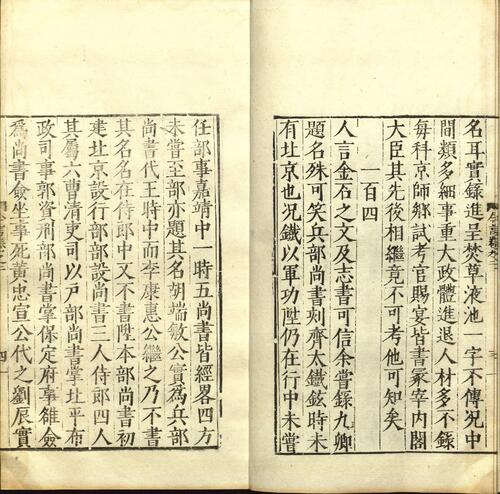 名耳實錄進呈焚草液池一字不傳況中
間類多細事重大政體進退人材多不錄
每科京師鄉試考官賜宴皆書冢宰内閣
大臣其先後相繼竟不可考他可知矣
一百四
人言金石之文及志書可信余嘗錄九卿
題名殊可笑兵部尚書刻齊太鐵鉉時未
有北京也況鐵以軍功陞仍在行中未嘗
任部事嘉靖中一時五尚書皆經畧四方
未嘗至部亦題其名胡端敏公實爲兵部
尚書代王時中而李康惠公繼之乃不書
其名名在侍郎中又不書陞本部尚書初
建北京設行部部設尚書二人侍郎四人
其屬六曹清吏司以戸部尚書掌北平布
政司事郭資刑部尚書掌保定府事雒僉
爲尚書僉坐事死黄忠宣公代之劉辰實